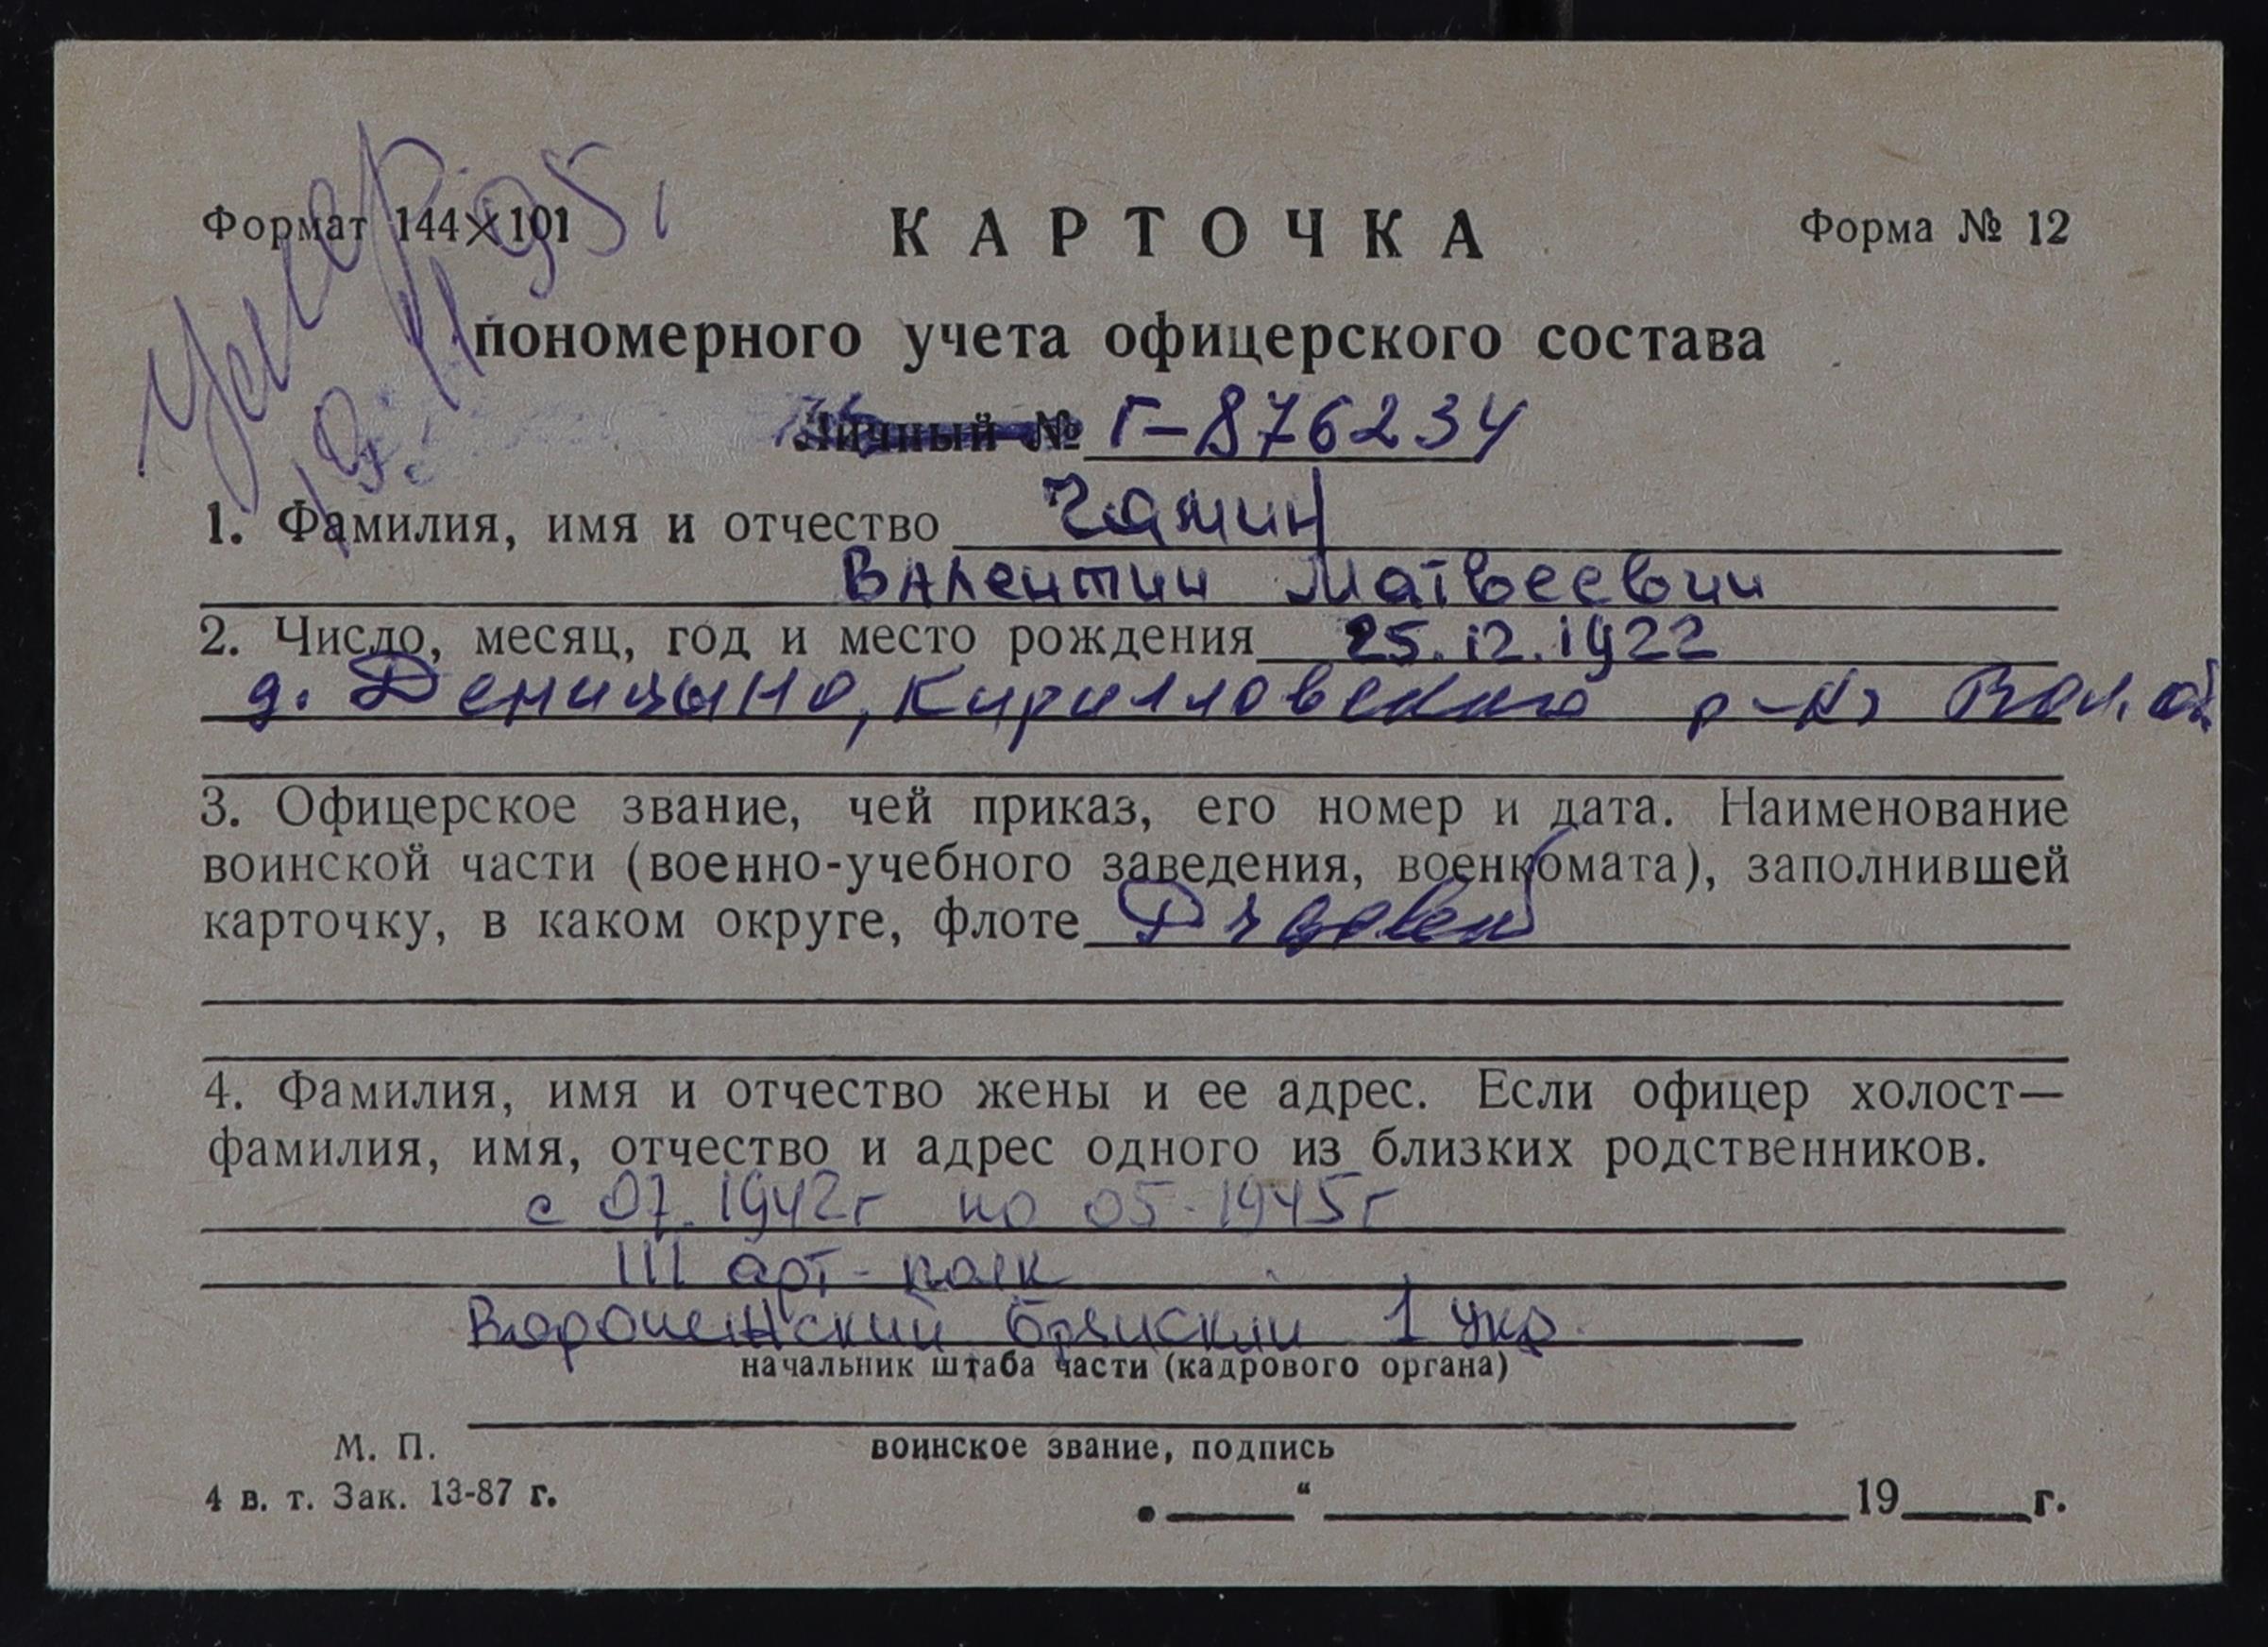 Умер
19.11.95г
Формат 144×101
КАРТОЧКА
Форма № 12
пономерного учета офицерского состава
Личный № Г-876234
1. Фамилия, имя и отчество Чамин
Валентин Матвеевич
2. Число, месяц, год и место рождения 25.12.1922
д. Кирилловского р-на Вол. об.
3. Офицерское звание, чей приказ, его номер и дата. Наименование
воинской части (военно-учебного заведения, военкомата), заполнившей
карточку, в каком округе, флоте Рядовой
4. Фамилия, имя и отчество жены и ее адрес. Если офицер холост—
фамилия, имя, отчество и адрес одного из близких родственников.
с 07.1942г по 05-1945г
111 арт-полк
Воронежский Брянский 1 Укр.
начальник штаба части (кадрового органа)
воинское звание, подпись
М. П.
4 в. т. Зак. 13-87 г.
„ “ 19 г.